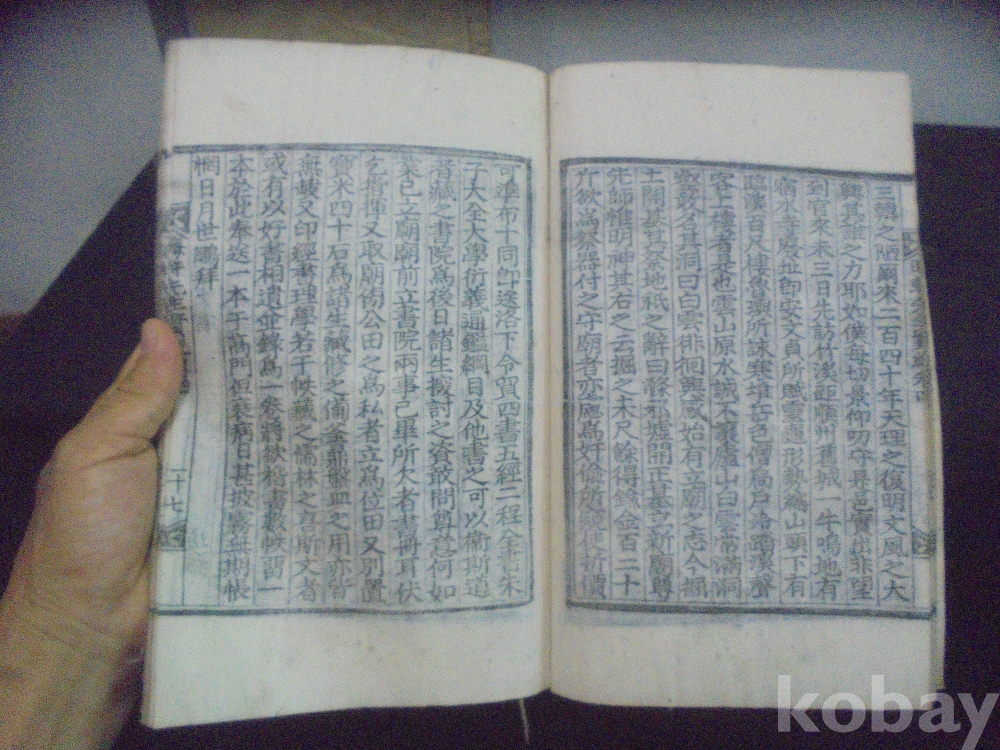 三綱之陋爾來二百四十年天理之復明文風之大
之力耶如僕每切景仰叨守是邑實出非望
到官來未三日先訪竹溪距順州舊城一牛鳴地有
宿水寺廢址即安文貞所賦雲遶形勢編山頭下有
臨溪百尺樓魯興所詠寒堆岳色僧扃戶冷踏溪聲
客上樓者是也雲山原水誠不讓廬山白雲常滿洞
壑敢名其洞曰白雲徘徊興感始有立廟之志今掘
土開基其祭地祇之辭曰修祀墟開正基立新廟尊
先師惟明神其右之云掘之未尺餘得鍮金百二十
斤欲爲祭器付之守廟者亦應爲奸偷所 折價
可準布十同即送洛下令貿四書五經二程全書朱
子大全大學衍義通鑑綱目及他書之可以衛斯道
者藏之書院爲後日諸生探討之資敢問尊意何如
業已立廟廟前立書院兩事已畢所欠者書冊耳伏
乞指揮又取廟傍公田之爲私者立爲位田又別置
寶米四十石爲諸生藏修之備釜鼎盤皿之用亦皆
無缺又印經書理學若干帙藏之儒林之喜斯文者
或有以好書相遺並錄爲一卷將欲 書數帙習一
本於此奉送一本于高門但衰病日甚披霧無期悵
惘日月世鵬拜
二十七
kobay